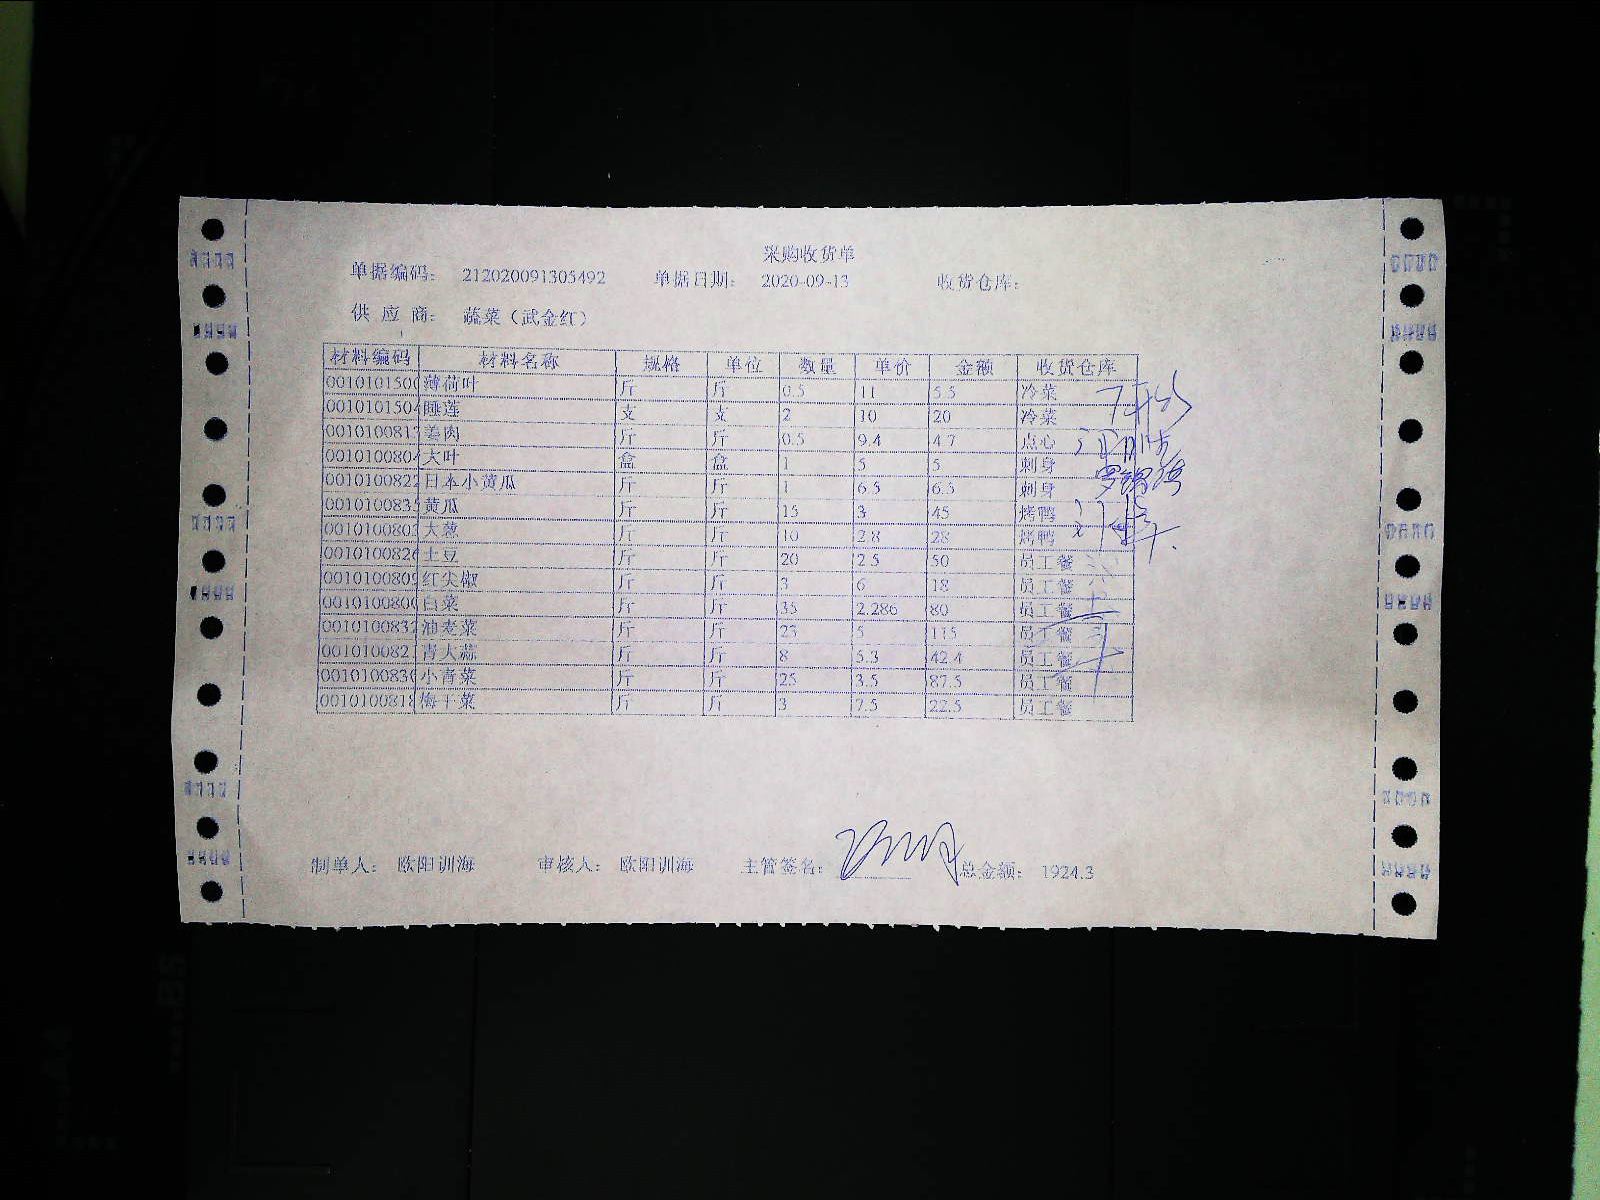 采购收货单
单据编码: 212020091305492 单据日期: 2020-09-13 收货仓库:
供应商: 蔬菜（武金红）
材料编码 材料名称 规格 单位 数量 单价 金额 收货仓库
0010101500 薄荷叶 斤 斤 0.5 11 5.5 冷菜
001010150 睡莲 支 支 2 10 20 冷菜
001010081 姜肉 斤 斤 0.5 9.4 4.7 点心
001010080 大叶 盒 盒 1 5 5 刺身
0010100822 日本小黄瓜 斤 斤 1 6.5 6.5 刺身
001010083 黄瓜 斤 斤 15 3 45 烤鸭
001010080 大葱 斤 斤 10 2.8 28 烤鸭
001010082 土豆 斤 斤 20 2.5 50 员工餐
001010080 红尖椒 斤 斤 3 6 18 员工餐
001010080 白菜 斤 斤 35 2.286 80 员工餐
001010083 油麦菜 斤 斤 23 5 115 员工餐
001010082 青大蒜 斤 斤 8 5.3 42.4 员工餐
001010083 小青菜 斤 斤 25 3.5 87.5 员工餐
001010081 梅干菜 斤 斤 3 7.5 22.5 员工餐
制单人: 欧阳训海 审核人: 欧阳训海 主管签名: 总金额: 1924.3